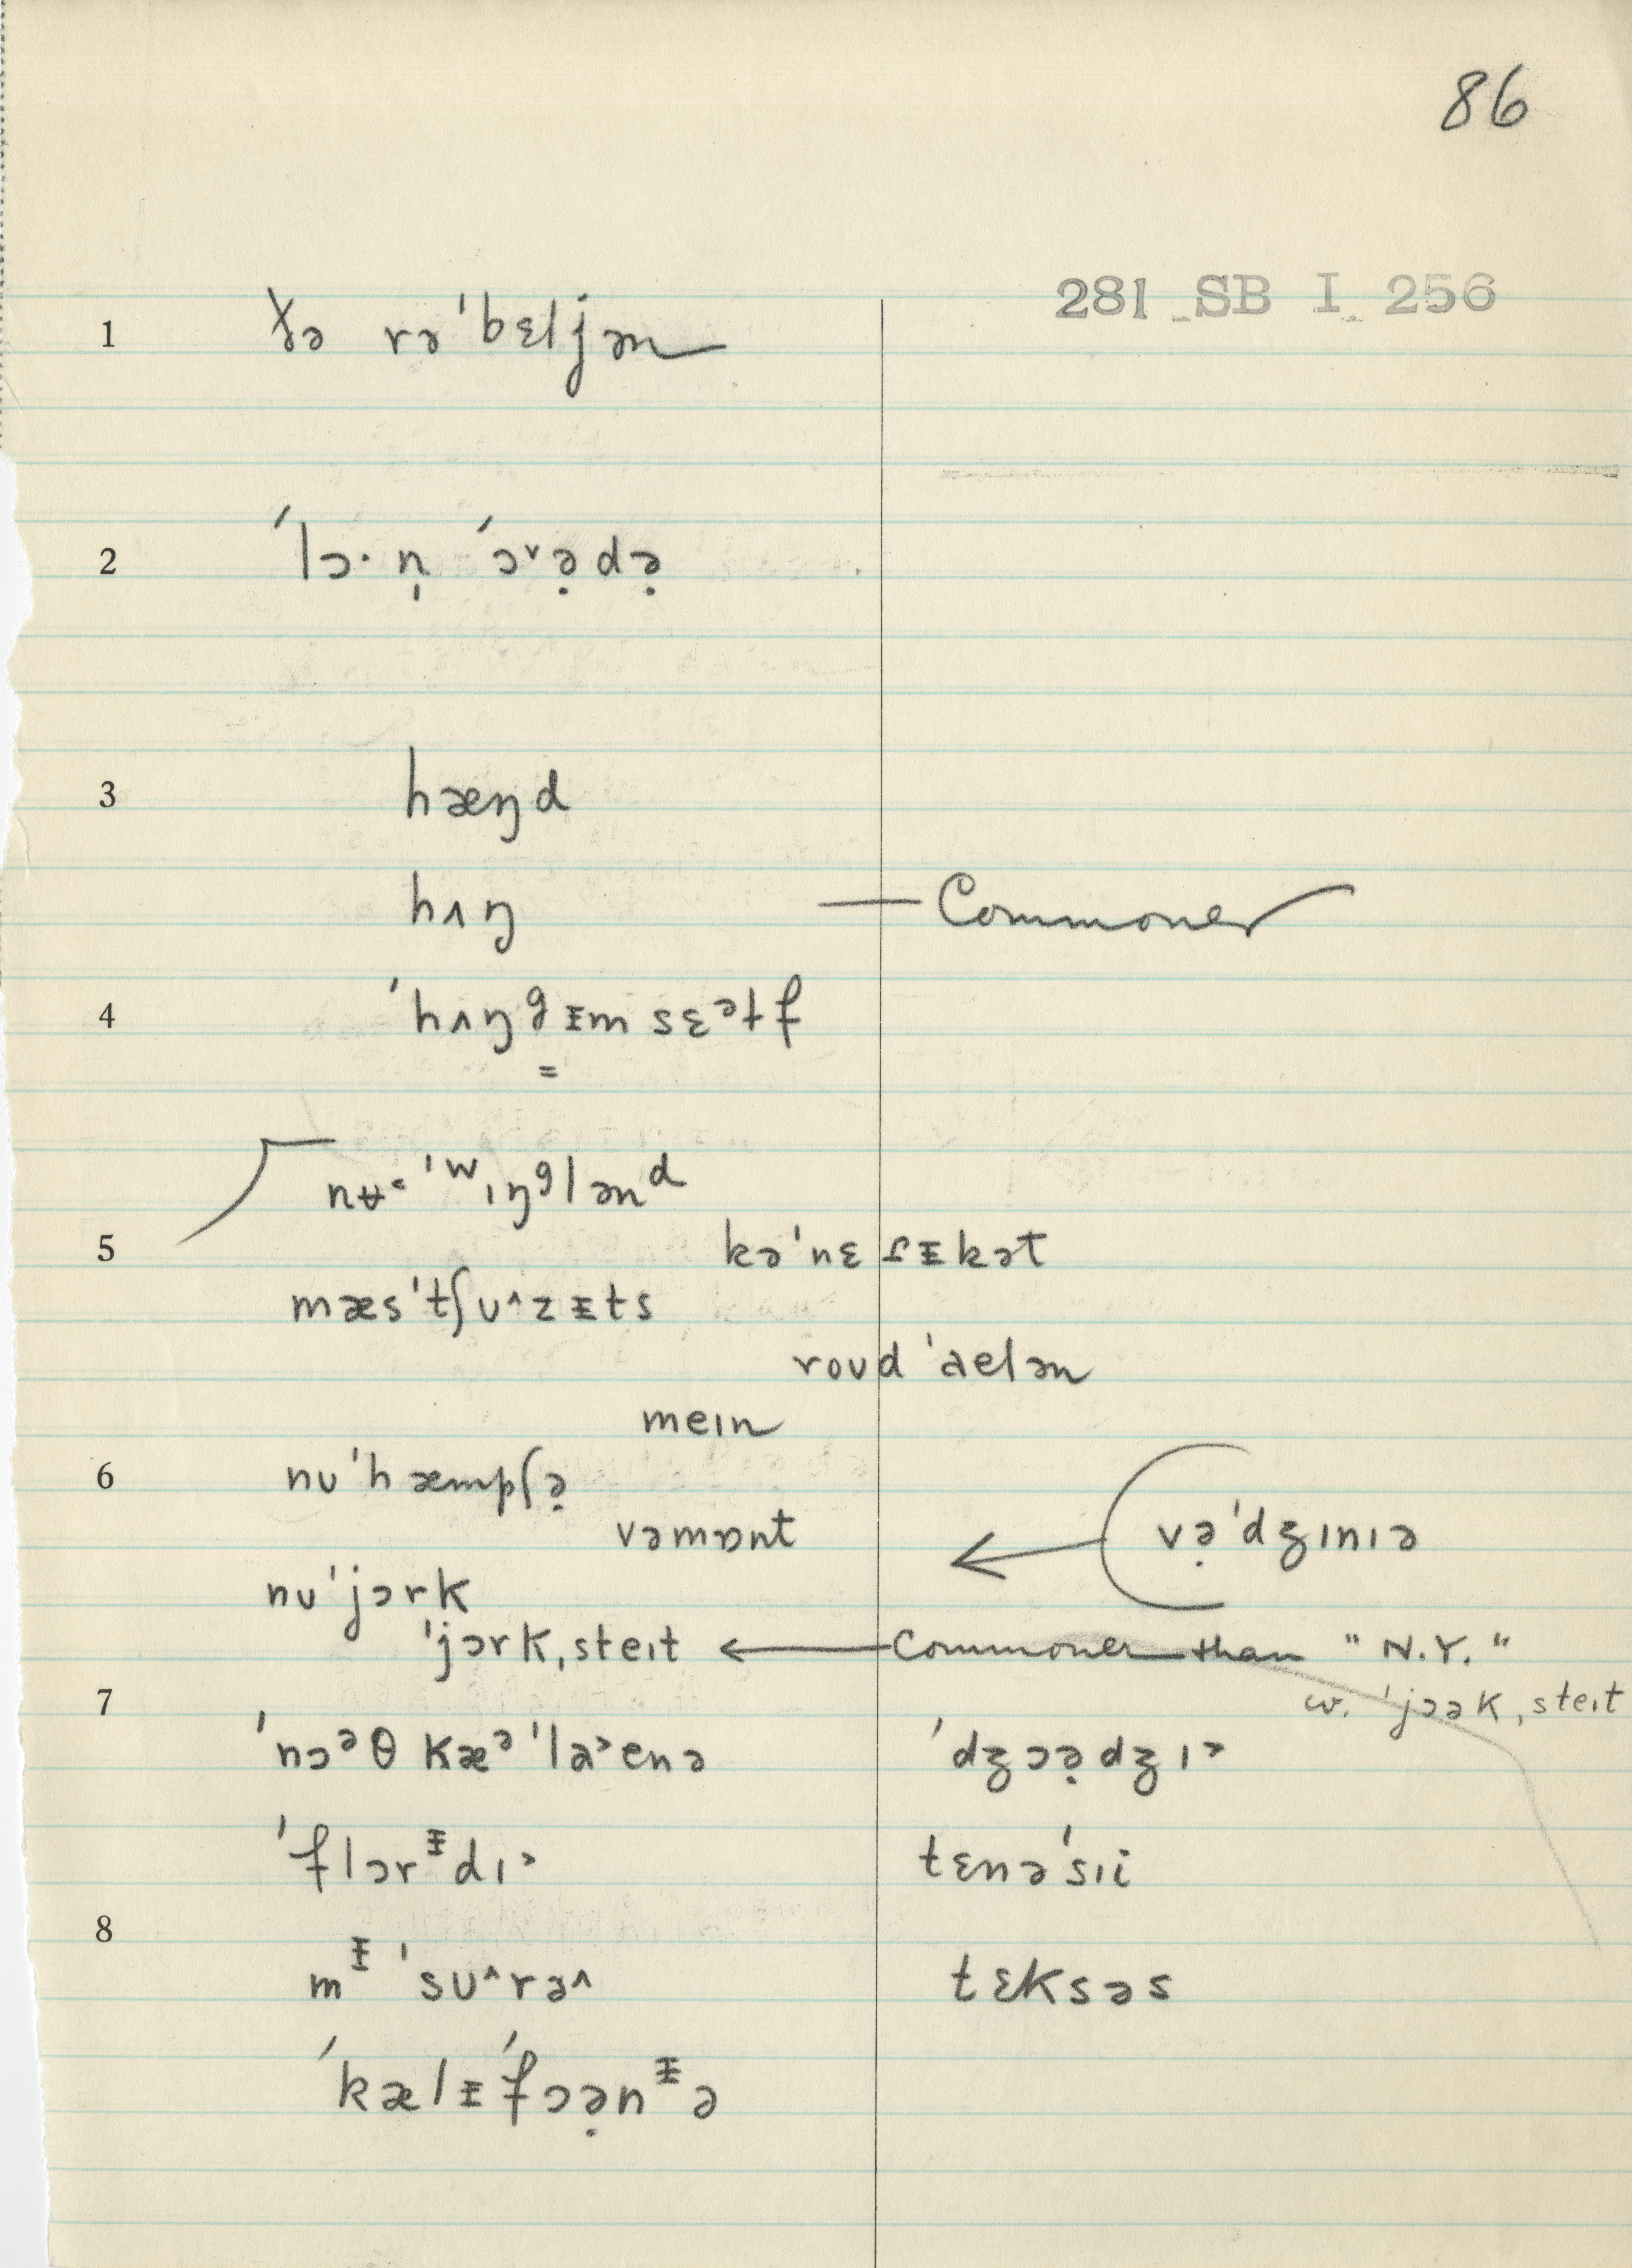 86
281 SB I 256
1 ðə rəˈbɛljən
2 ˈlɔ·n̩ ˈɔ˅ə̣də̣
3 hæŋd
hʌŋ — Commoner
4 ˈhʌŋᶢᵻm sɛᵊɫf
nʉ˂ ˈʷɪŋᶢləndᵈ
5 kəˈnɛɾᵻkət
mæsˈtʃu˄zᵻts
roud ˈaelən
meɪn
6 nuˈhæmpʃə̣
vəmɒnt və̣ˈdʒɪnɪə
nuˈjɔrk
ˈjɔrkˌsteɪt ← Commoner than "N.Y."
7 w. ˈjɔəkˌsteɪt
ˈnɔᵊθ kæᵊˈla˃enə ˈdʒɔə̣dʒɪ˃
ˈflɔrᵻdɪ˃ tɛnəˈsɪi
8
mᵻˈsu˄rə˄ tɛksəs
ˈkælᵻˈfɔə̣nᵻə